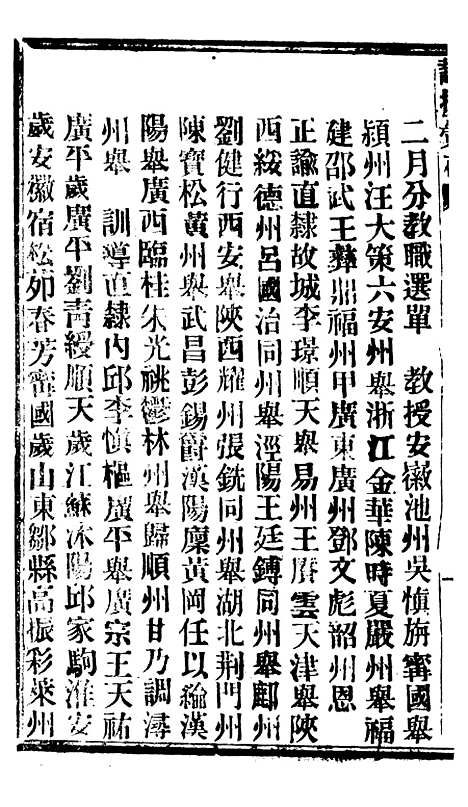 二月分教職選單　教授安徽池州吳慎旃甯國舉
潁州汪大策六安州舉浙江金華陳時夏嚴州舉福
建邵武王彝鼎福州甲廣東廣州鄧文彪韶州恩
正諭直隸故城李璟順天舉易州王磨雲天津舉陝
西綏德州呂國治同州舉涇陽王廷鏄同州舉鄜州
劉健行西安舉陝西耀州張銑同州舉湖北荆門州
陳寶松黃州舉武昌彭錫爵漢陽廩黃岡任以綸漢
陽舉廣西臨桂朱光祧鬱林州舉歸順州甘乃調潯
州舉　訓導直隸內邱李慎樞廣平舉廣宗王天祐
廣平歲廣平劉青綬順天歲江蘇沭陽邱家駒淮安
歲安徽宿松卯春芳甯國歲山東鄒縣高振彩萊州